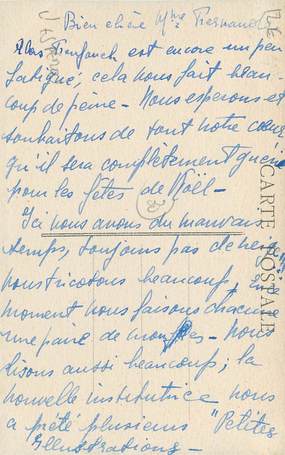 Bien chère Mme Fernande
est encore un peu
fatigué, cela nous fait beau-
coup de peine - Nous esperons et
souhaitons de tout notre cœur
qu'il sera complètement guéri
pour les fêtes de Noël -
Ici nous avons du mauvais
temps, toujours pas de
nous tricotons beaucoup, en
moment nous faisons chacune
une paire de - Nous
lisons aussi beaucoup; la
nouvelle institutrice nous
a prêté plusieurs "Petites
Illustrations -
CARTE POSTALE